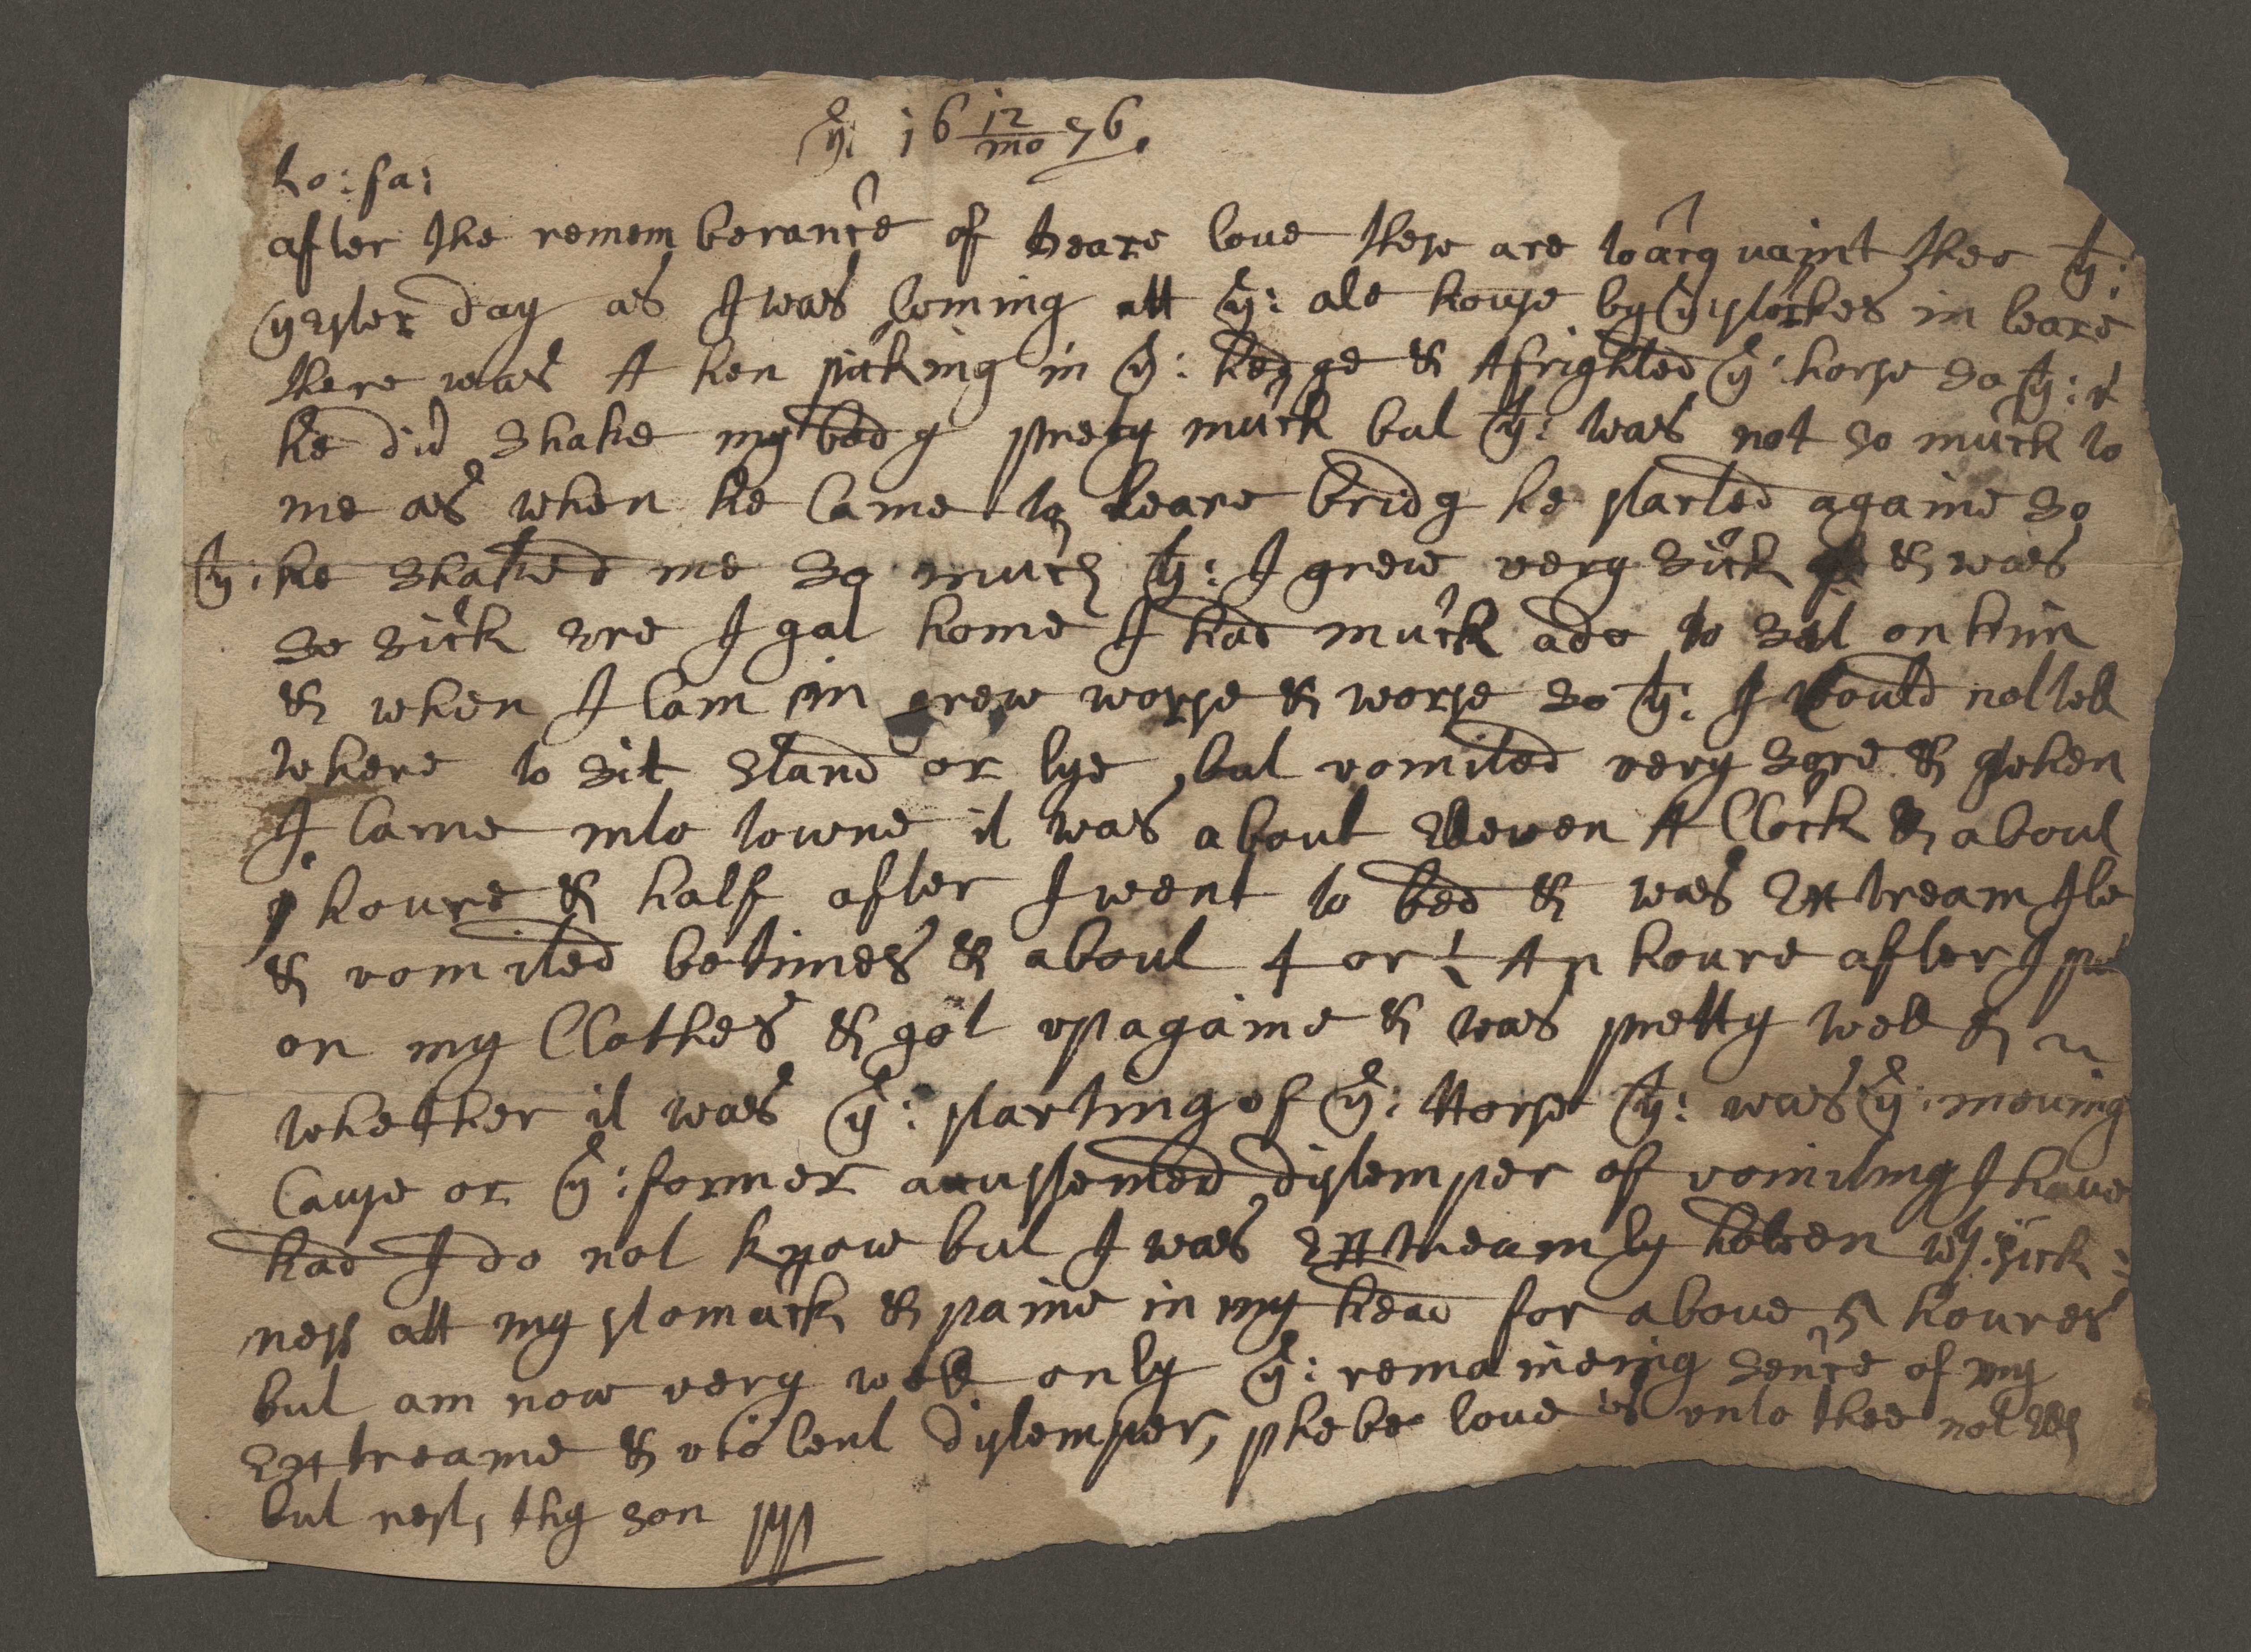 yͤ: 16 12/mo 76.
Lo: fa:
after the rememberance of deare love these are to acquaint thee yᵗ:
yester day as I was Coming att yͤ: ale house by yͤ stockes in leare
there was A hen picking in yͤ: hedge & Afrighted yͤ: horse so yᵗ:
he did shake my body prety much but yᵗ: was not so much to
me as when he Came to leare bridg he started againe so
yᵗ: he shaked me so much yᵗ: I grew very sick & was
so sick ere I gat home I had much ado to sit on him
& when I Cam in grew worse & worse so yᵗ: I Could not tell
where to sit stand or lye, but vomited very sore & when
I Came into towne it was about Eleven A Clock & about
houre & half after I went to bed & was Extream Ile
& vomited betimes & about 4 or An houre after I
on my Clothes & got up againe & was pretty well &
whether it was yͤ: starting of yͤ: Horse yᵗ: was yͤ: moving
Cause or yͤ: former accustemed distemper of vomiting I have
had I do not know but I was Extreamly holden wᵗ: sick=
ness att my stomack & paine in my head for above 5 houres
but am now very well only yͤ: remaineing sence of my
Extreame & violent distemper, phebe love is unto thee not Els
but rest, thy son